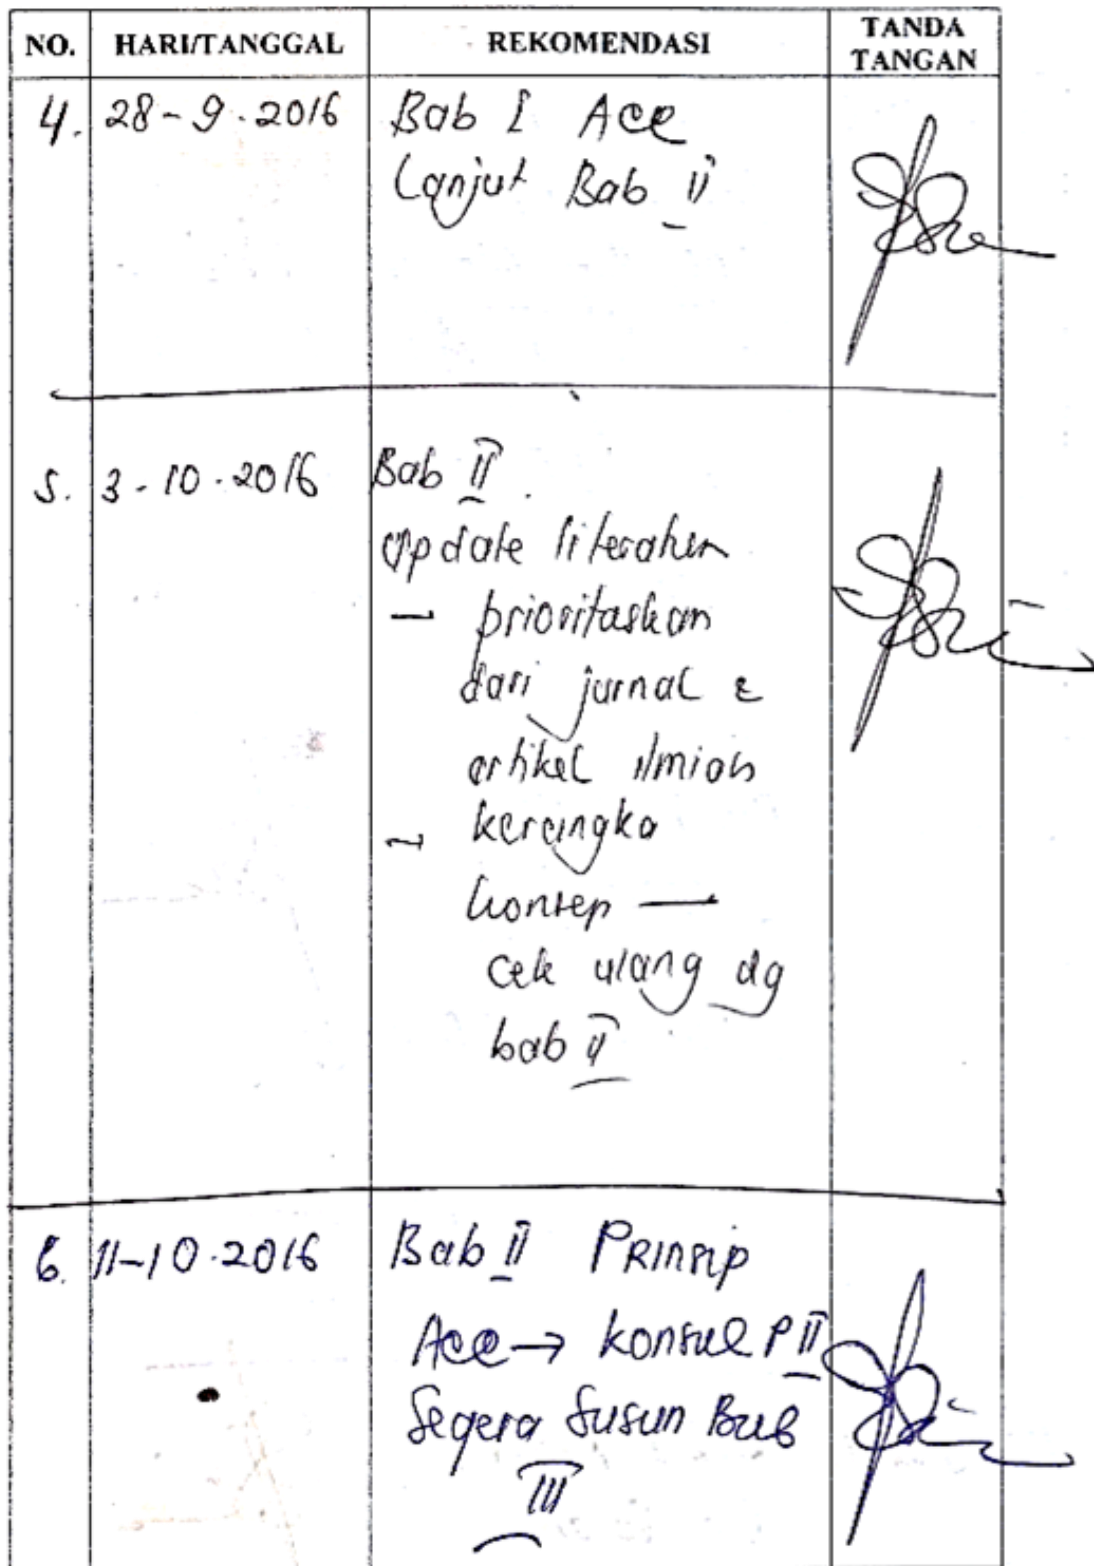 NO. HARI/TANGGAL REKOMENDASI TANDA TANGAN
4. 28-9-2016 Bab I Acc
Lanjut Bab II
5. 3-10-2016 Bab II.
update literatur
- prioritaskan
dari jurnal &
artikel ilmiah
- kerangka
konsep —
cek ulang dg
bab II
6. 11-10-2016 Bab II Prinsip
Acc → konsul P II
Segera Susun Bab
III